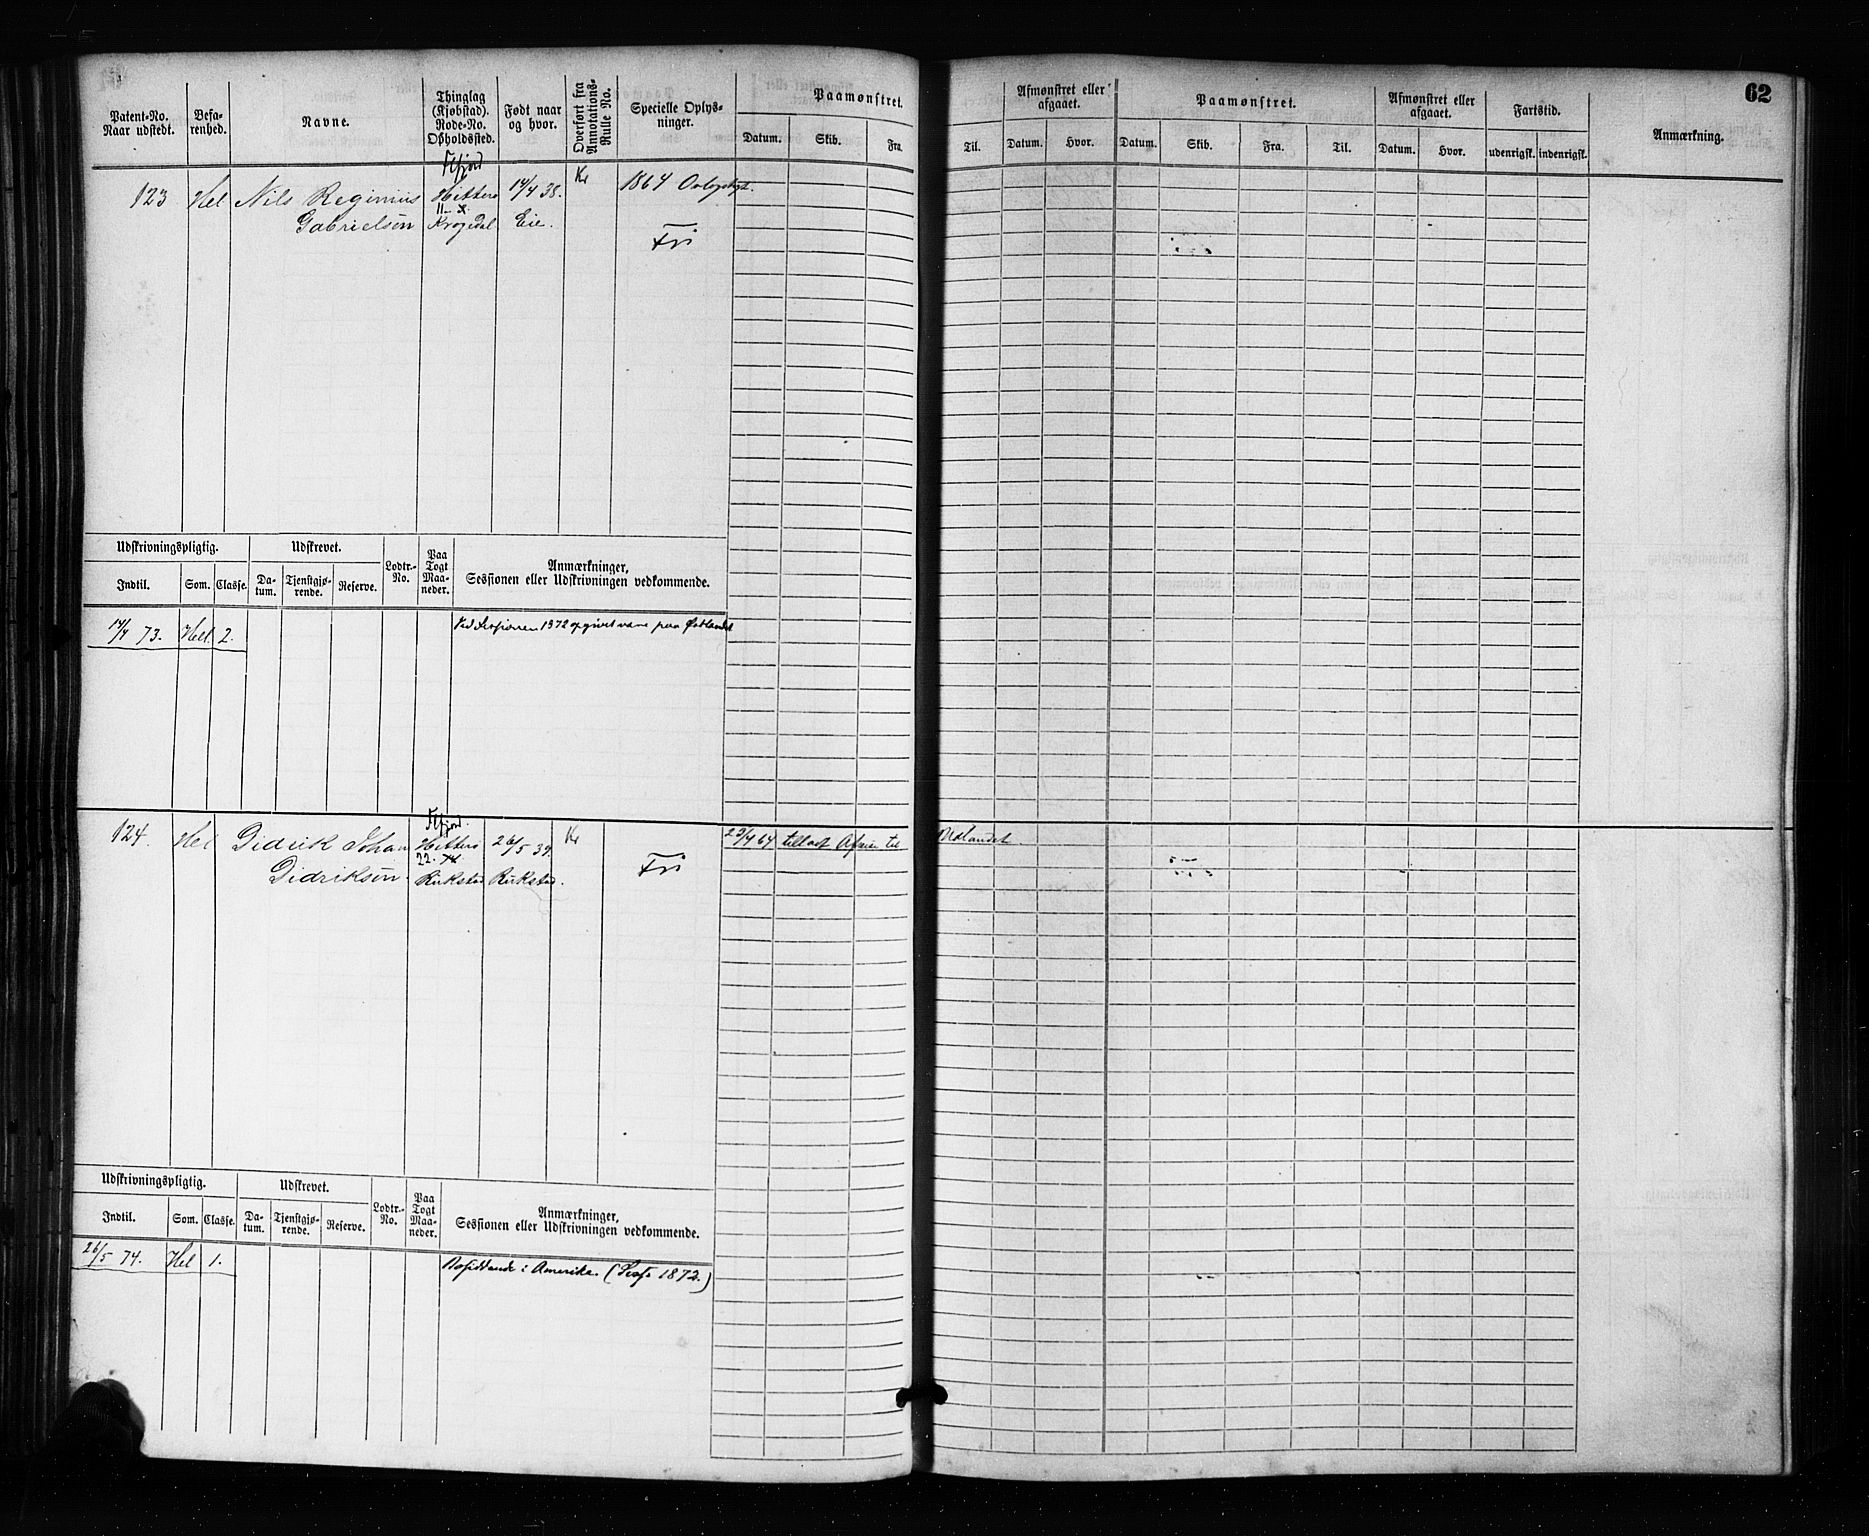 62
Patent-No. Naar udstedt.
Befa-renhed.
Navne.
Thinglag (Kjøbstad). Rode-No. Opholdssted.
Født naar og hvor.
Overført fra Annotations-Rulle No.
Specielle Oplys-ninger.
Paamønstret.
Datum. Skib. Fra.
Til.
Afmønstret eller afgaaet.
Datum. Hvor.
Paamønstret.
Datum. Skib. Fra. Til.
Afmønstret eller afgaaet.
Datum. Hvor.
Fartstid.
udenrigsk. indenrigsk.
Anmærkning.
Flfjord
123 Hel Nils Reginius Hitterø 14/4 38. Kr 1864
11
Gabrielsen Krogedal Eie. Fri
Udskrivningspligtig. Udskrevet. Lodtr.-No. Paa Togt Maa-neder. Anmærkninger, Sessionen eller Udskrivningen vedkommende.
Indtil. Som. Classe. Da-tum. Tjenstgjø-rende. Reserve.
14/4 73. Hel 2. Ved Sessionen 1872 opgivet være paa
Flfjord.
124. Hel Didrik Johan Hitterø 26/5 39. Kr Fri 23/4 64 tilladt Afreise til Udlandet.
22.
Didriksen. Rukstad Rukstad.
Udskrivningspligtig. Udskrevet. Lodtr.-No. Paa Togt Maa-neder. Anmærkninger, Sessionen eller Udskrivningen vedkommende.
Indtil. Som. Classe. Da-tum. Tjenstgjø-rende. Reserve.
26/5 74. Hel 1. Bosiddende i Amerika. (Sess. 1872.)